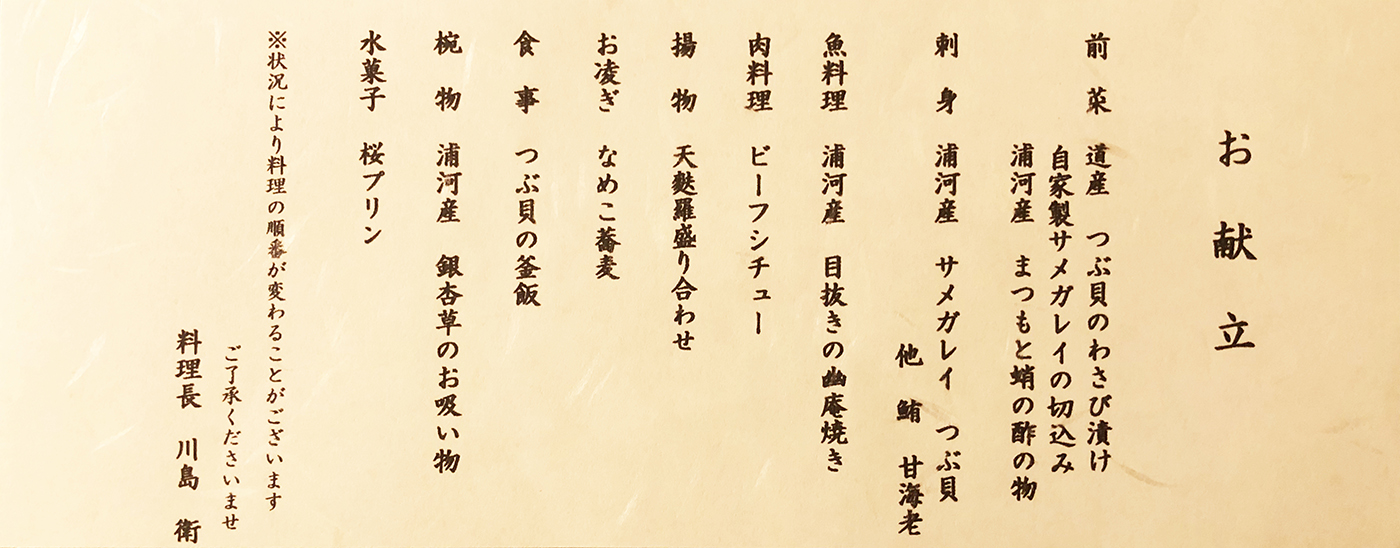 お献立
前菜 道産 つぶ貝のわさび漬け
自家製サメガレイの切込み
浦河産 まつもと蛸の酢の物
刺身 浦河産 サメガレイ つぶ貝
他 鮪 甘海老
魚料理 浦河産 目抜きの幽庵焼き
肉料理 ビーフシチュー
揚物 天麩羅盛り合わせ
お凌ぎ なめこ蕎麦
食事 つぶ貝の釜飯
椀物 浦河産 銀杏草のお吸い物
水菓子 桜プリン
※状況により料理の順番が変わることがございます
ご了承くださいませ
料理長 川島 衛